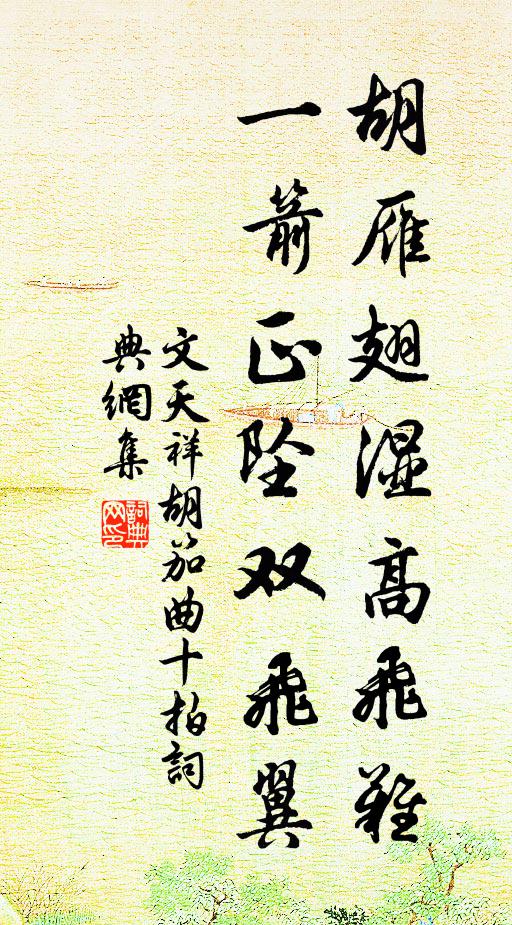 胡雁翅湿高飞難
一箭正坠双飛翼
文天祥胡笳曲十拍詞
典網集
詞典
网印